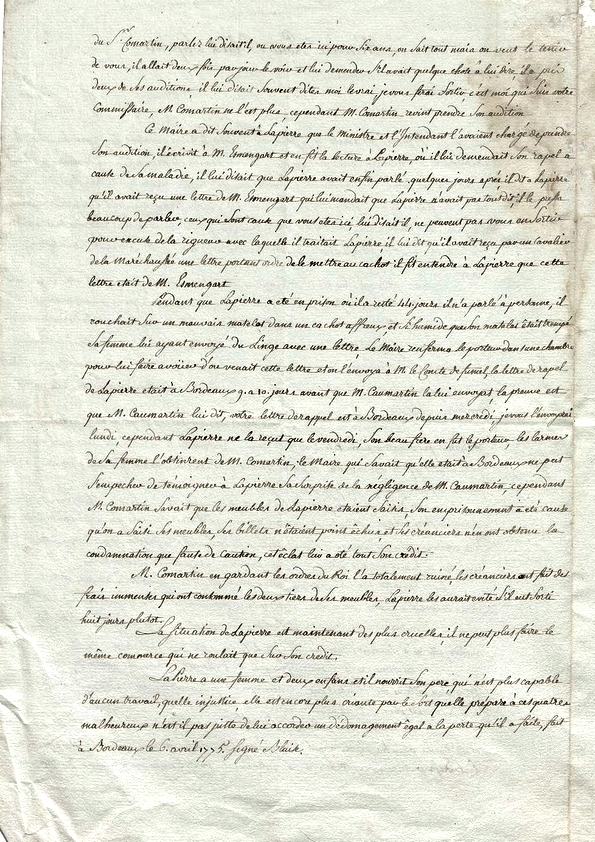 du Sr. Comartin, parlez lui disait il, ou vous etes ici pour six ans, on sait tout mais on veut le tenir
de vous, il allait deux fois par jour le voir et lui demander s'il avait quelque chose a lui dire, il a pris
deux de ses auditions, il lui disait souvent dites moi le vrai, je vous ferai sortir c'est moi qui suis votre
Commissaire, M. Comartin ne l'est plus, cependant M. Comartin revint prendre son audition
Ce Maire a dit souvent a Lapierre que le Ministre et l'Intendant l'avaient chargé de prendre
son audition, il écrivit à M. Esmengart et en fit la lecture a Lapierre, où il lui demandait son rapel a
cause de sa maladie, il lui disait que Lapierre avait enfin parlé, quelques jours après il dit a Lapierre
qu'il avait reçu une lettre de M. Esmengart qui lui mandait que Lapierre n'avait pas tout dit, il le pressa
beaucoup de parler, ceux qui sont cause que vous etes ici, lui disait il, ne peuvent pas vous en sortir
pour excuse de la rigueur avec laquelle il traitait Lapierre il lui dit qu'il avait reçu par un cavalier
de la Maréchaussée une lettre portant ordre de le mettre au cachot il fit entendre à Lapierre que cette
lettre était de M. Esmengart
Pendant que Lapierre a été en prison où il a resté 44 jours il n'a parlé a personne, il
couchait sur un mauvais matelas dans un cachot affreux et si humide que son matelas était trempé
sa femme lui ayant envoyé du Linge avec une lettre. Le Maire renferma le porteur dans une chambre
pour lui faire avoüer d'ou venait cette lettre et on l'envoya à M. le Comte de fumel, la lettre de rapel
de Lapierre était à Bordeaux 9. a 10. jours avant que M. Caumartin la lui envoyat la preuve est
que M. Caumartin lui dit, votre lettre de rappel est à Bordeaux depuis mercredi, je vous l'enverrai
lundi, cependant Lapierre ne la reçut que le vendredi, Son beau frere en fut le porteur, les larmes
de sa femme l'obtinrent de M. Comartin, le Maire qui savait qu'elle etait a Bordeaux ne put
s'empecher de témoigner à Lapierre sa surprise de la négligence de M. Caumartin, cependant
M. Comartin savait que les meubles de Lapierre étaient saisis, Son emprisonnement a été cause
qu'on a saisi ses meubles, ses billets n'étaient point échus et ses créanciers n'en ont obtenu la
condamnation que faute de caution, cet éclat lui a oté tout son crédit.
M. Comartin en gardant les ordres du Roi l'a totalement ruiné, les créanciers ont fait des
frais immenses qui ont consommé les deux tiers de ses meubles, Lapierre les aurait evité s'il est sorti
huit jours plutot.
La situation de Lapierre est maintenant des plus cruelles, il ne peut plus faire le
même commerce qui ne roulait que sur son crédit.
Lapierre a une femme et deux enfans et il nourrit son pere qui n'est plus capable
d'aucun travail, quelle injustice elle est encore plus criante par le sort qu'elle prépare à ces quatre
malheureux n'est il pas juste de lui accorder un dédomagement égal a la perte qu'il a faite, fait
à Bordeaux le 6. avril 1775. Signé